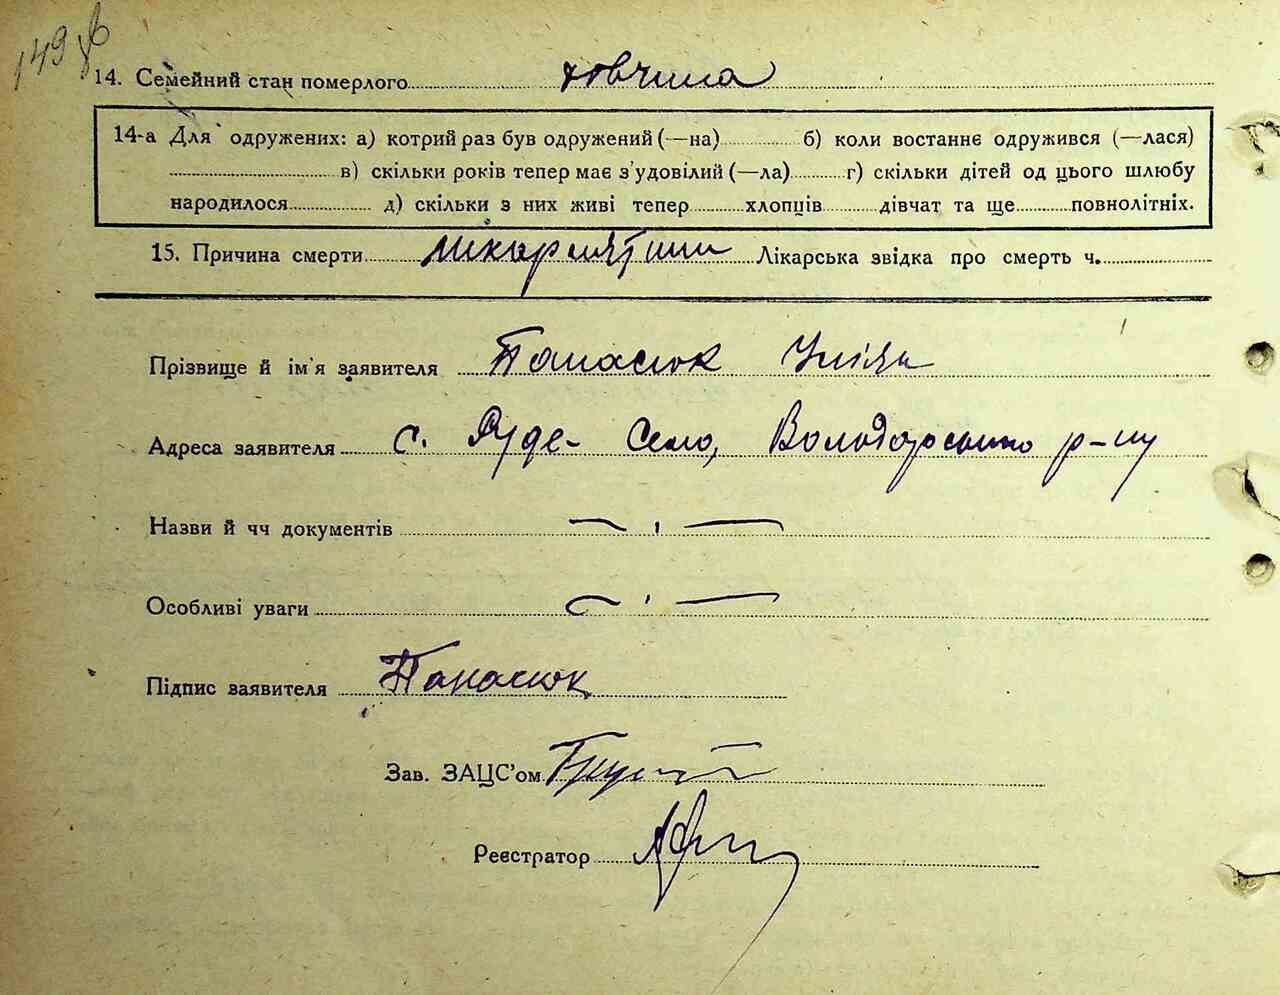 149
14. Семейний стан померлого
14-а Для одружених: а) котрий раз був одружений (—на) б) коли востаннє одружився (—лася)
в) скільки років тепер має з'удовілий (—ла) г) скільки дітей од цього шлюбу
народилося д) скільки з них живі тепер хлопців дівчат та ще повнолітніх.
15. Причина смерти Лікарська звідка про смерть ч.
Прізвище й ім'я заявителя Панасюк Уліян
Адреса заявителя с. Руде-Село, Володарського р-ну
Назви й чч документів
Особливі уваги
Підпис заявителя Панасюк
Зав. ЗАЦС'ом
Реєстратор